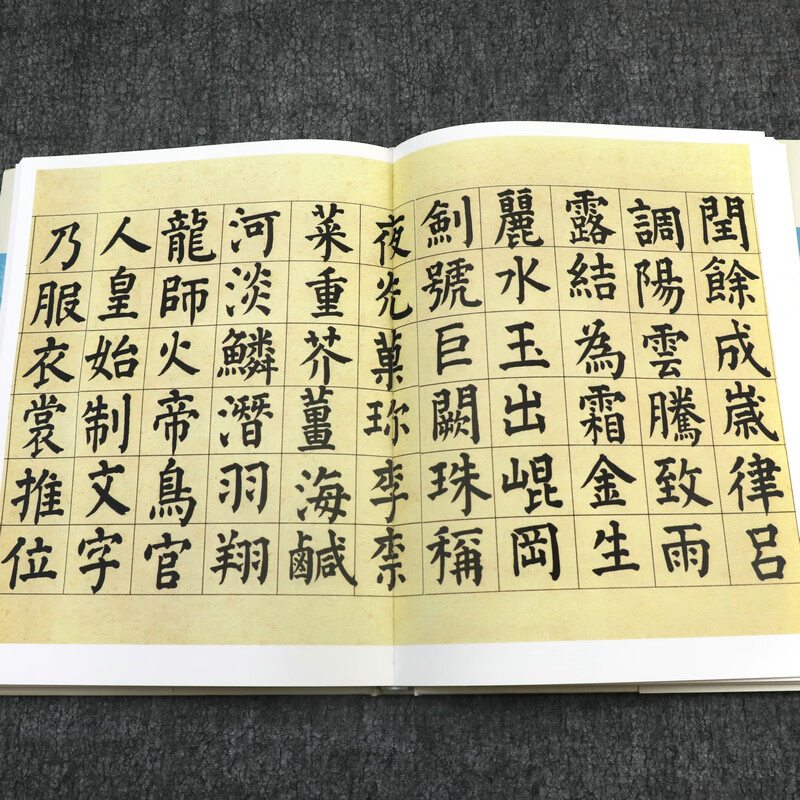 閏餘成歳律呂
調陽雲騰致雨
露結為霜金生
麗水玉出崐岡
劍號巨闕珠稱
夜光菓珎李柰
菜重芥薑海鹹
河淡鱗潛羽翔
龍師火帝鳥官
人皇始制文字
乃服衣裳推位